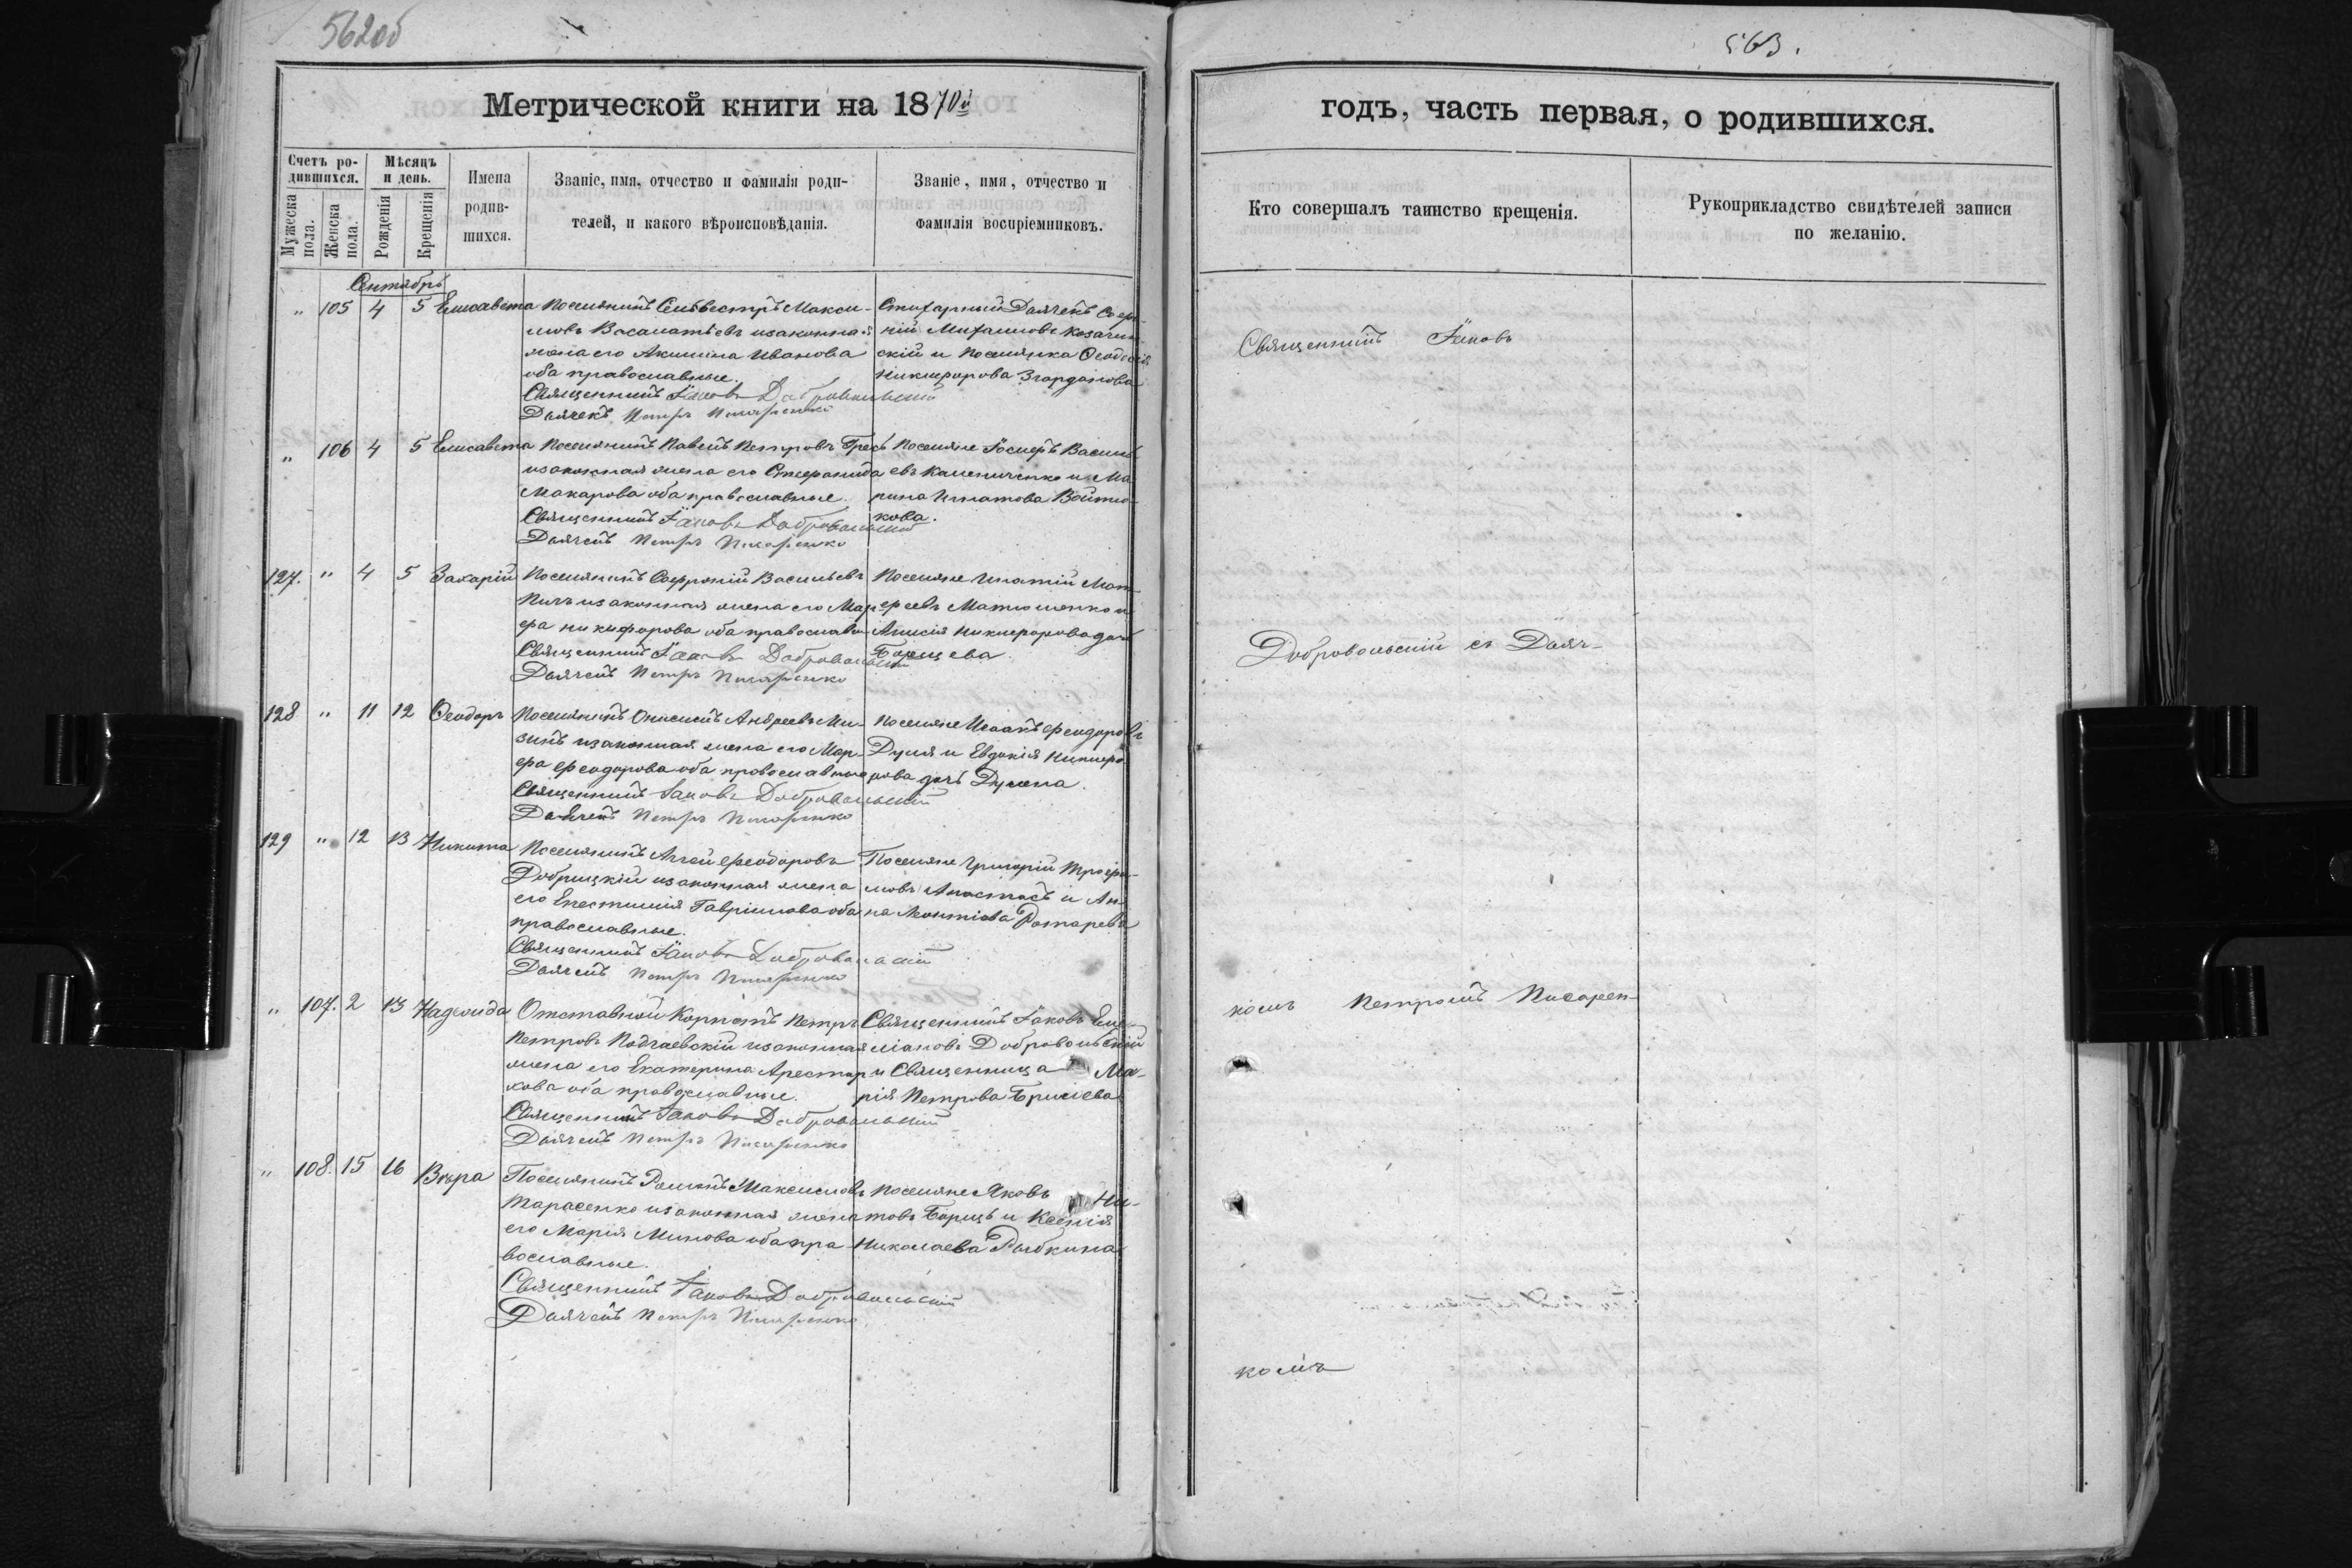 562об
Метрической книги на 1870й
Счетъ ро-
дившихся.
Мѣсяцъ
и день.
Мужеска
пола.
Женска
пола.
Рожденія
Крещенія
Имена
родив-
шихся.
Званіе, имя, отчество и фамилія роди-
телей, и какого вѣроисповѣданія.
Званіе, имя, отчество и
фамилія воспріемниковъ.
Сентябрь
" 105 4 5 Елисавета
Поселянинъ Сильвестръ Макси-
мовъ изаконная
жена его Акилина Иванова
оба православные.
Священникъ Іаковъ Добровольскій
Дьячекъ Петръ Писаренко
Стихарный Дьячекъ Софро-
ній Михаиловъ
скій и Поселянка Ѳеодосія
Никифорова
" 106 4 5 Елисавета
Поселянинъ Павелъ Петровъ
изаконная жена его Стефанида
Макарова оба православные.
Священникъ Іаковъ Добровольскій
Дьячекъ Петръ Писаренко
Поселяне Іосифъ Василь-
евъ Калениченко и Ма-
рина Игнатова Войтю-
кова.
127. " 4 5 Захарій
Поселянинъ Софроній Васильевъ
изаконная жена его Мар-
фа Никифорова оба православн
Священникъ Іаковъ Добровольскій
Дьячекъ Петръ Писаренко
Поселяне Игнатій Мат-
феевъ Матюшенко и
Анисія Никифорова дочь
Борщева
128 " 11 12 Ѳеодоръ
Поселянинъ Онисимъ Андреевъ Ми-
зинъ изаконная жена его Мар-
фа Феодорова оба православные
Священникъ Іаковъ Добровольскій
Дьячекъ Петръ Писаренко
Поселяне Исаакъ Феодоровъ
и Евдокія Никифо-
рова дочь
129 " 12 13 Никита
Поселянинъ Аггей Феодоровъ
Добрицкій изаконная жена
его Епистимія Гавріилова оба
православные.
Священникъ Іаковъ Добровольскій
Дьячекъ Петръ Писаренко
Поселяне Григорій Трофи-
мовъ Апостолъ и Ан-
на Леонтіева Ротарева
" 107. 2 13 Надежда
Отставной Корнетъ Петръ
Петровъ Подгаевскій изаконная
жена его Екатерина Арестар-
хова оба православные.
Священникъ Іаковъ Добровольскій
Дьячекъ Петръ Писаренко
Священникъ Іаковъ Еме-
ліановъ Добровольскій
и Священница Ма-
рія Петрова
" 108. 15 16 Вѣра
Поселянинъ Романъ Максимовъ
Тарасенко изаконная жена
его Марія Минова оба пра-
вославные.
Священникъ Іаковъ Добровольскій
Дьячекъ Петръ Писаренко
Поселяне Яковъ Ни-
товъ Борщъ и Ксенія
Николаева Рыбкина
563.
годъ, часть первая, о родившихся.
Кто совершалъ таинство крещенія.
Рукоприкладство свидѣтелей записи
по желанію.
Священникъ Іаковъ
Добровольскій съ Дьяч-
комъ Петромъ Писарен-
комъ